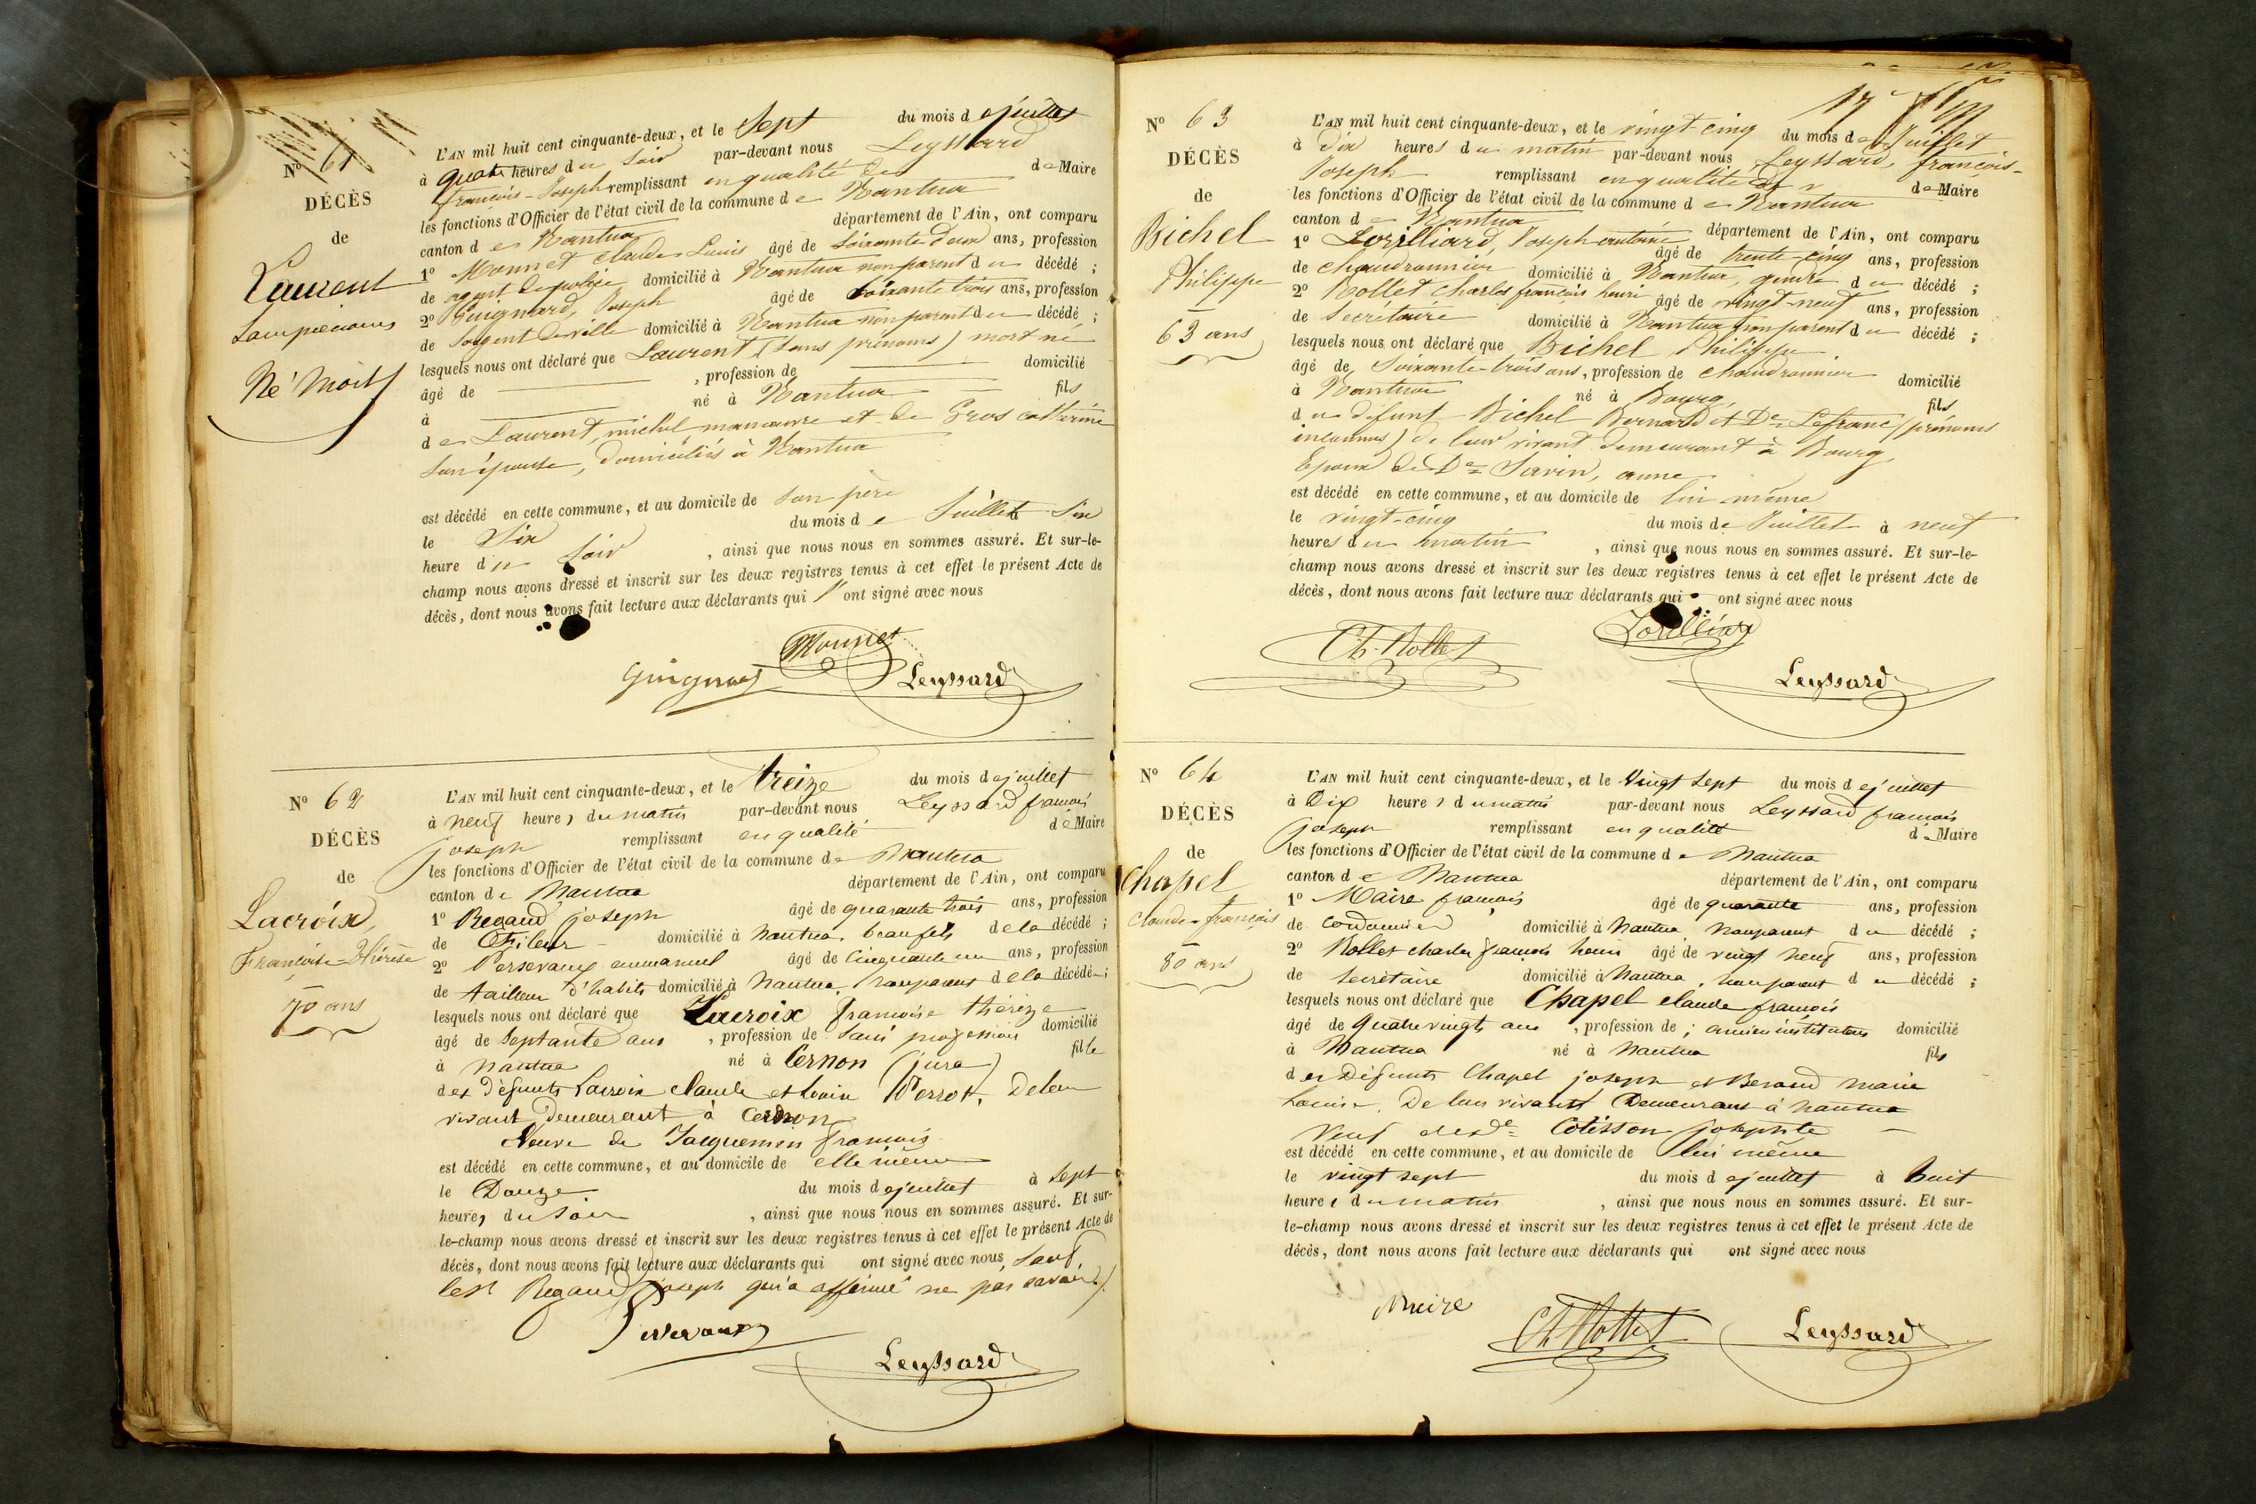 Nº 61
DÉCÈS
de
Laurent
Sans prénoms
Né Mort
L'AN mil huit cent cinquante-deux, et le Sept du mois de juillet
à quatre heures du Soir par-devant nous Leyssard
françois-Joseph remplissant en qualité de Maire
les fonctions d'Officier de l'état civil de la commune de Nantua
canton de Nantua département de l'Ain, ont comparu
1º Monnet Claude Louis âgé de Soixante deux ans, profession
de agent de police domicilié à Nantua non parent du décédé ;
2º Guignard, Joseph âgé de Soixante trois ans, profession
de Sergent de ville domicilié à Nantua non parent du décédé ;
lesquels nous ont déclaré que Laurent (Sans prénoms) mort né
âgé de , profession de domicilié
à né à Nantua fils
de Laurent, michel manœuvre et de Gros catherine
Son épouse, domiciliés à Nantua
est décédé en cette commune, et au domicile de Son père
le Six du mois de Juillet Six
heure du Soir , ainsi que nous nous en sommes assuré. Et sur-le-
champ nous avons dressé et inscrit sur les deux registres tenus à cet effet le présent Acte de
décès, dont nous avons fait lecture aux déclarants qui ont signé avec nous
Monnet
Guignard Leyssard
Nº 62
DÉCÈS
de
Lacroix,
Françoise-Thérèse
70 ans
L'AN mil huit cent cinquante-deux, et le treize du mois de juillet
à neuf heures du matin par-devant nous Leyssard françois
joseph remplissant en qualité de Maire
les fonctions d'Officier de l'état civil de la commune de Nantua
canton de Nantua département de l'Ain, ont comparu
1º Regaud joseph âgé de quarante trois ans, profession
de fileur domicilié à Nantua beaufils de la décédé ;
2º Persevaux emmanuel âgé de Cinquante un ans, profession
de tailleur d'habits domicilié à Nantua, non parent de la décédée ;
lesquels nous ont déclaré que Lacroix françoise thérèze
âgé de Septante ans , profession de Sans profession domicilié
à Nantua né à Cernon (jura) fille
des défunts Lacroix claude et Perrot, De leur
vivant Demeurant à Cernon
Veuve de Jacquemin françois
est décédé en cette commune, et au domicile de elle même
le Douze du mois de juillet à Sept
heures du Soir , ainsi que nous nous en sommes assuré. Et sur-
le-champ nous avons dressé et inscrit sur les deux registres tenus à cet effet le présent Acte de
décès, dont nous avons fait lecture aux déclarants qui ont signé avec nous Sauf
le Sr Regaud joseph qui a affirmé ne pas savoir.
Persevaux
Leyssard
Nº 63
DÉCÈS
de
Bichel
Philippe
63 ans
L'AN mil huit cent cinquante-deux, et le vingt-cinq du mois de Juillet
à dix heures du matin par-devant nous Leyssard, françois-
Joseph remplissant en qualité de Maire
les fonctions d'Officier de l'état civil de la commune de Nantua
canton de Nantua département de l'Ain, ont comparu
1º Lorilliard, Joseph antoine âgé de trente-cinq ans, profession
de chaudronnier domicilié à Nantua, gendre du décédé ;
2º Rollet Charles françois henri âgé de vingt-neuf ans, profession
de Secrétaire domicilié à Nantua non parent du décédé ;
lesquels nous ont déclaré que Bichel Philippe
âgé de Soixante-trois ans, profession de chaudronnier domicilié
à Nantua né à Bourg, fils
du défunt Bichel Bernard et De Lefranc (prénoms
inconnus) de leur vivant demeurant à Bourg
Epoux de De Savin, anne
est décédé en cette commune, et au domicile de lui même
le vingt-cinq du mois de Juillet à neuf
heures du matin , ainsi que nous nous en sommes assuré. Et sur-le-
champ nous avons dressé et inscrit sur les deux registres tenus à cet effet le présent Acte de
décès, dont nous avons fait lecture aux déclarants qui ont signé avec nous
Ch. Rollet Lorilliard
Leyssard
Nº 64
DÉCÈS
de
Chapel
Claude-françois
80 ans
L'AN mil huit cent cinquante-deux, et le Vingt Sept du mois de juillet
à Dix heures du matin par-devant nous Leyssard françois
joseph remplissant en qualité de Maire
les fonctions d'Officier de l'état civil de la commune de Nantua
canton de Nantua département de l'Ain, ont comparu
1º Maire françois âgé de quarante ans, profession
de Cordonnier domicilié à Nantua, non parent du décédé ;
2º Rollet charles françois henri âgé de vingt neuf ans, profession
de Secrétaire domicilié à Nantua, non parent du décédé ;
lesquels nous ont déclaré que Chapel claude françois
âgé de quatre vingts ans , profession de ; ancien instituteur domicilié
à Nantua né à Nantua fils
des Défunts Chapel joseph et Beraud marie
Louise, De leur vivant Demeurant à Nantua
Veuf de De Cotisson josephte
est décédé en cette commune, et au domicile de lui même
le vingt sept du mois de juillet à huit
heures du matin , ainsi que nous nous en sommes assuré. Et sur-
le-champ nous avons dressé et inscrit sur les deux registres tenus à cet effet le présent Acte de
décès, dont nous avons fait lecture aux déclarants qui ont signé avec nous
Maire Ch Rollet Leyssard